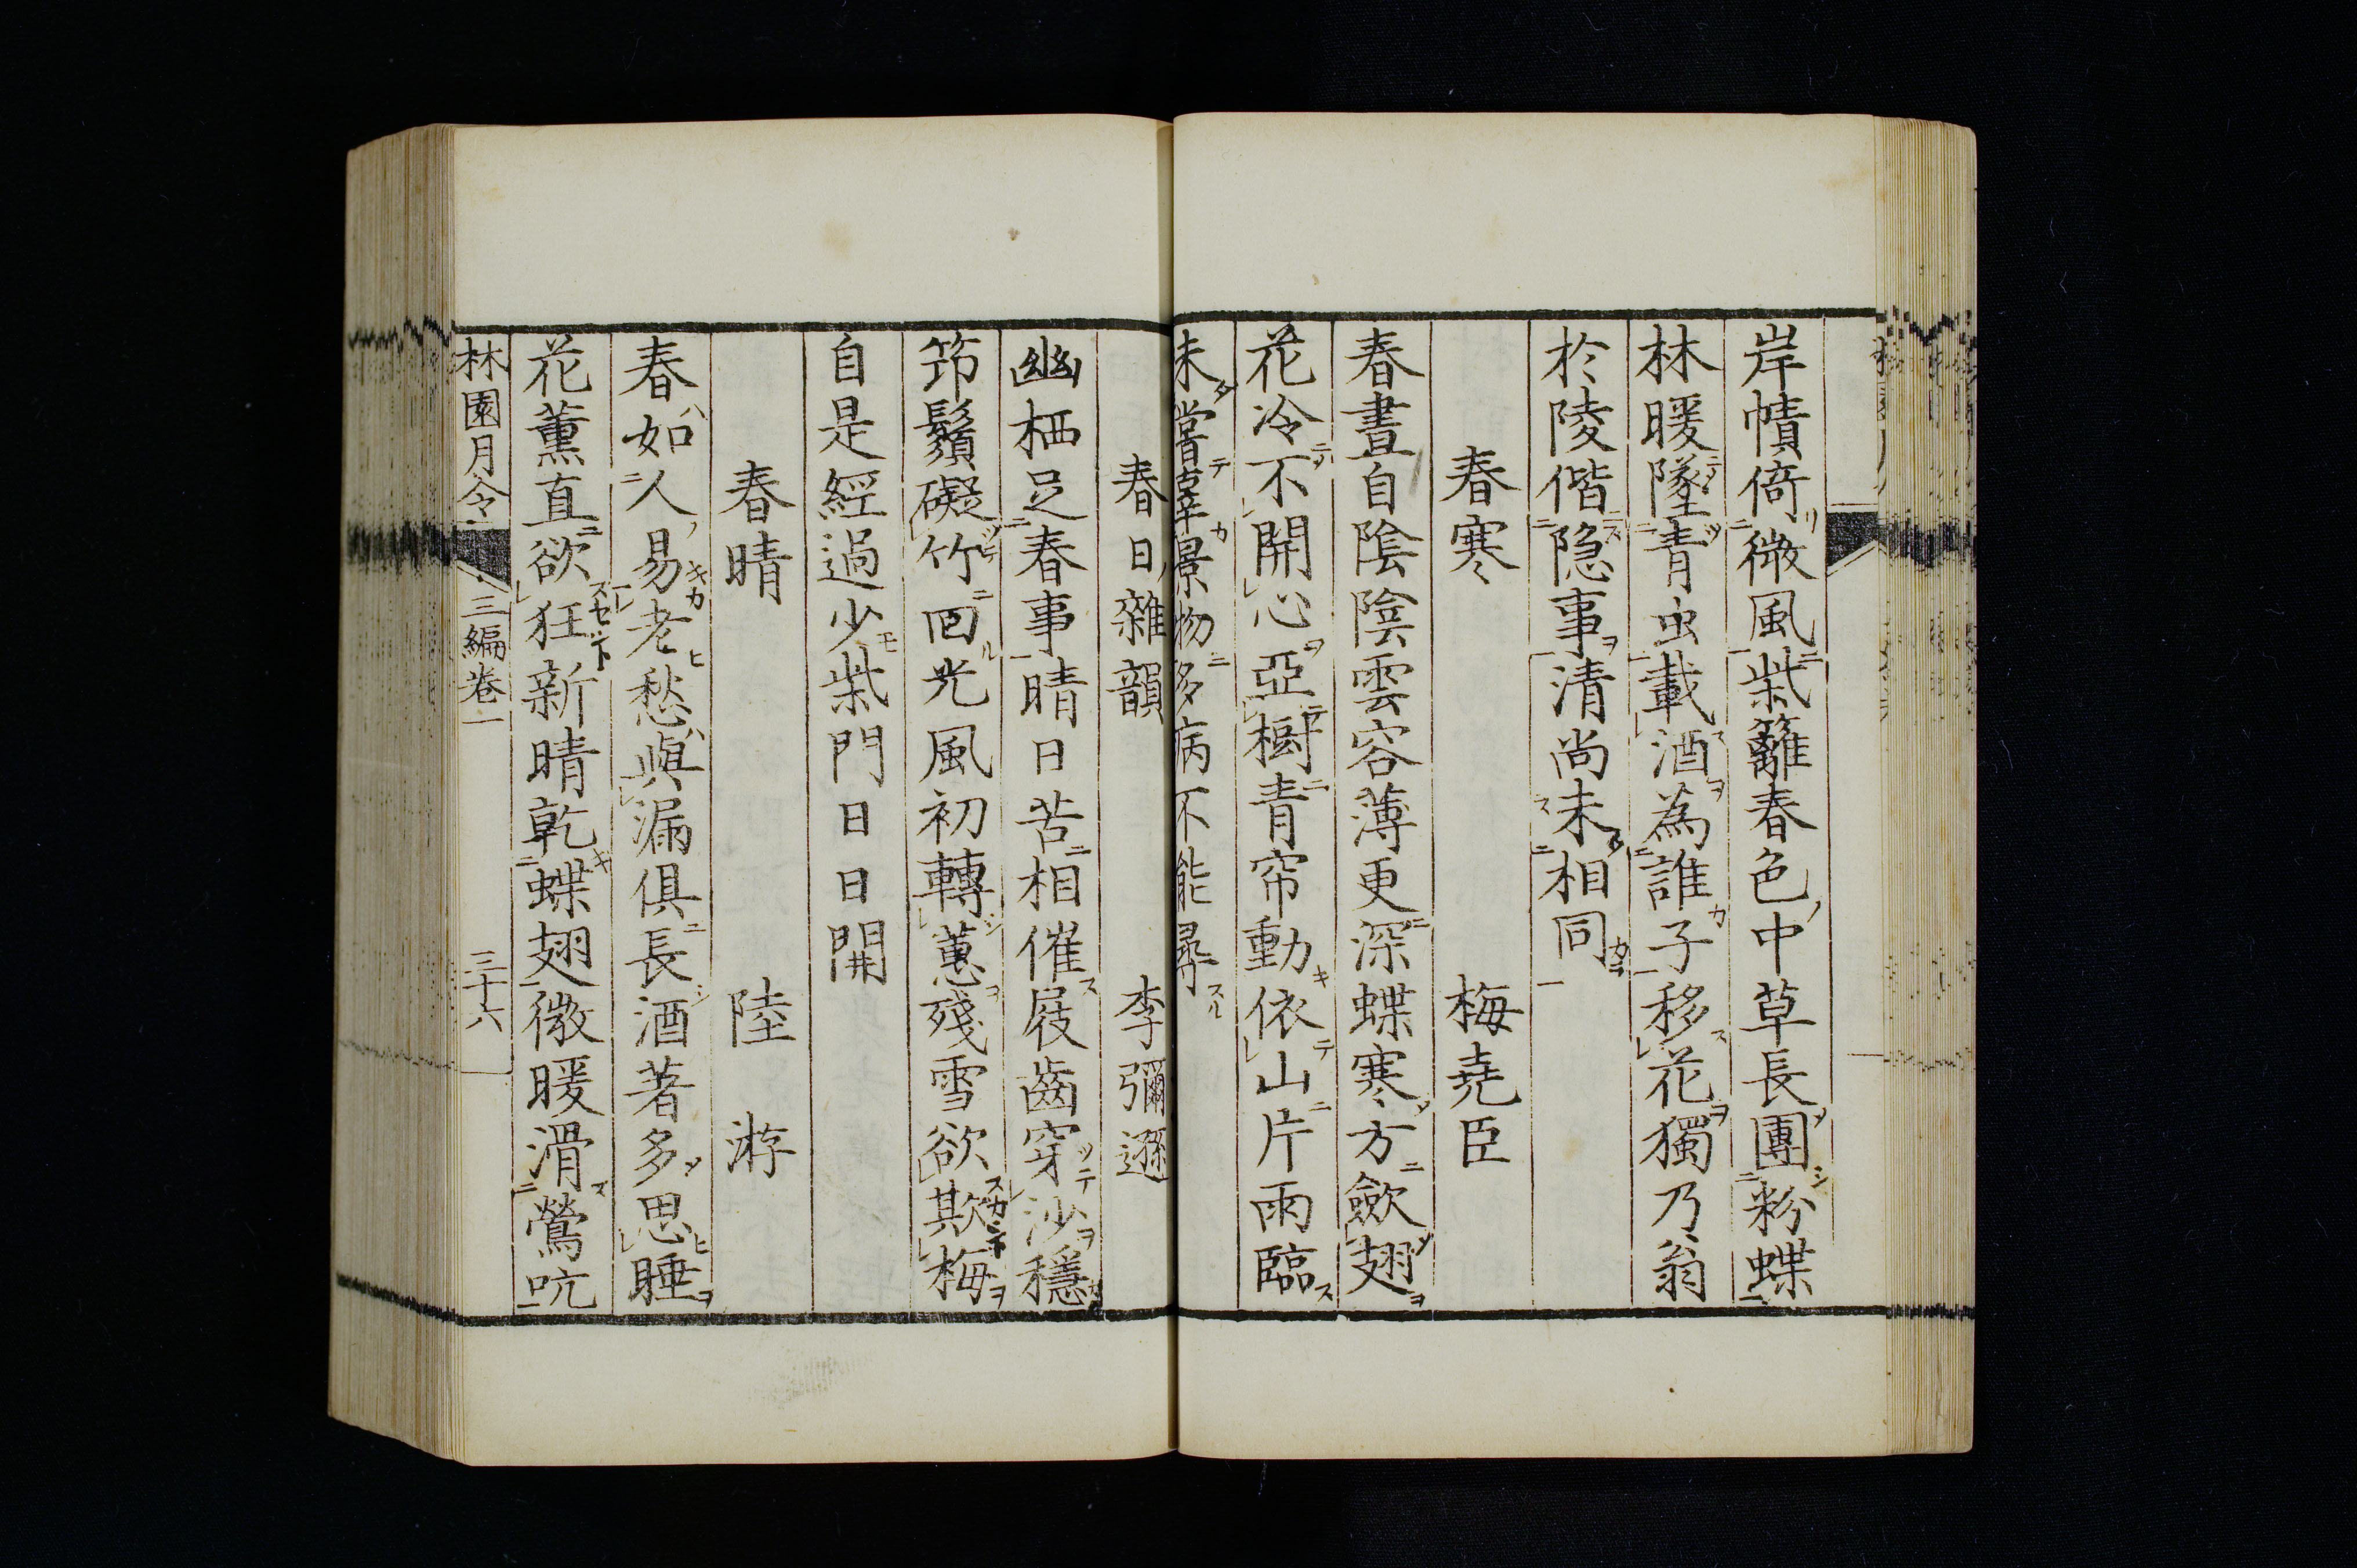 岸幘倚微風柴籬春色中草長團粉蝶
林暖墜青虫載酒為誰子移花獨乃翁
於陵偕隠事清尚未相同
春寒　梅堯臣
春晝自陰陰雲容薄更深蝶寒方斂翅
花冷不開心亞樹青帘動依山片雨臨
未嘗辜景物多病不能尋
春日雜韻　李彌遜
幽栖足春事晴日苦相催屐齒穿沙穩
筇鬚礙竹回光風初轉蕙殘雪欲欺梅
自是經過少柴門日日開
春晴　陸游
春如人易老愁與漏俱長酒著多思睡
花薰直欲狂新晴乾蝶翅微暖滑鶯吭
林園月令　三編卷一　三十六